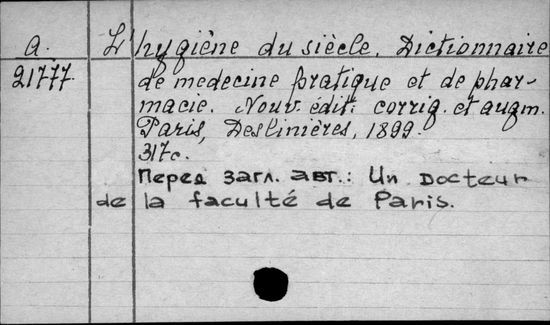 A. L'hygiène du siècle. Dictionnaire
21777. de medecine pratique et de phar-
macie. Nouv. édit. corrig. et augm.
Paris, Deslinières, 1899.
317c.
Перед загл. авт.: Un Docteur
de la faculté de Paris.